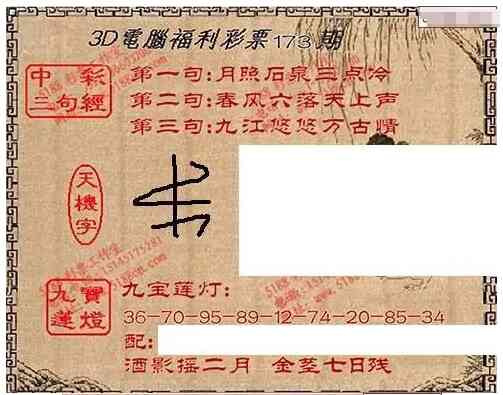 3D電腦福利彩票173期
中彩
三句經
第一句:月照石泉三点冷
第二句:春风六落天上声
第三句:九江悠悠万古情
天機字
九寶
蓮燈
九宝莲灯:
36-70-95-89-12-74-20-85-34
配:
酒影摇二月 金茎七日残